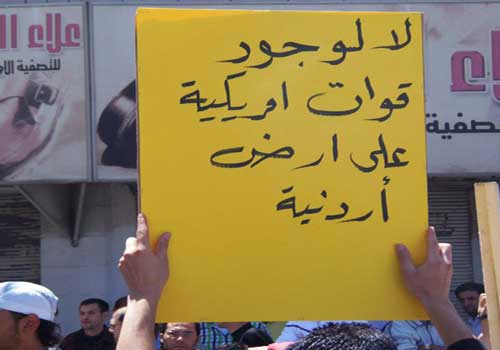 لا لوجود
قوات امريكية
على ارض
أردنية
علاء ال
للتصفية الا